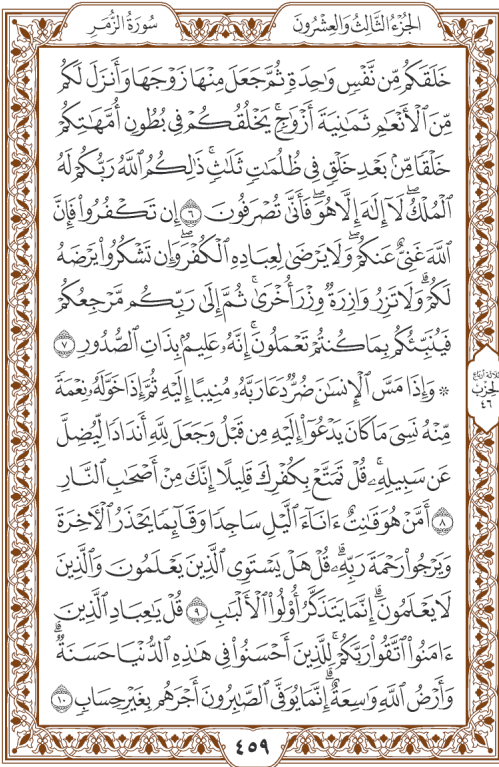 سُورَةُ الزُّمَرِ
الجُزْءُ الثَّالِثُ وَالعِشْرُونَ
خَلَقَكُم مِّن نَّفْسٍ وَٰحِدَةٍ ثُمَّ جَعَلَ مِنْهَا زَوْجَهَا وَأَنزَلَ لَكُم
مِّنَ ٱلْأَنْعَٰمِ ثَمَٰنِيَةَ أَزْوَٰجٍۚ يَخْلُقُكُمْ فِى بُطُونِ أُمَّهَٰتِكُمْ
خَلْقًا مِّنۢ بَعْدِ خَلْقٍ فِى ظُلُمَٰتٍ ثَلَٰثٍۚ ذَٰلِكُمُ ٱللَّهُ رَبُّكُمْ لَهُ
ٱلْمُلْكُۖ لَآ إِلَٰهَ إِلَّا هُوَۖ فَأَنَّىٰ تُصْرَفُونَ ٦ إِن تَكْفُرُوا۟ فَإِنَّ
ٱللَّهَ غَنِىٌّ عَنكُمْۖ وَلَا يَرْضَىٰ لِعِبَادِهِ ٱلْكُفْرَۖ وَإِن تَشْكُرُوا۟ يَرْضَهُ
لَكُمْۗ وَلَا تَزِرُ وَازِرَةٌ وِزْرَ أُخْرَىٰۚ ثُمَّ إِلَىٰ رَبِّكُم مَّرْجِعُكُمْ
فَيُنَبِّئُكُم بِمَا كُنتُمْ تَعْمَلُونَۚ إِنَّهُۥ عَلِيمٌۢ بِذَاتِ ٱلصُّدُورِ ٧
* وَإِذَا مَسَّ ٱلْإِنسَٰنَ ضُرٌّ دَعَا رَبَّهُۥ مُنِيبًا إِلَيْهِ ثُمَّ إِذَا خَوَّلَهُۥ نِعْمَةً
مِّنْهُ نَسِىَ مَا كَانَ يَدْعُوٓا۟ إِلَيْهِ مِن قَبْلُ وَجَعَلَ لِلَّهِ أَندَادًا لِّيُضِلَّ
عَن سَبِيلِهِۦۚ قُلْ تَمَتَّعْ بِكُفْرِكَ قَلِيلًا إِنَّكَ مِنْ أَصْحَٰبِ ٱلنَّارِ
٨ أَمَّنْ هُوَ قَٰنِتٌ ءَانَآءَ ٱلَّيْلِ سَاجِدًا وَقَآئِمًا يَحْذَرُ ٱلْءَاخِرَةَ
وَيَرْجُوا۟ رَحْمَةَ رَبِّهِۦۗ قُلْ هَلْ يَسْتَوِى ٱلَّذِينَ يَعْلَمُونَ وَٱلَّذِينَ
لَا يَعْلَمُونَۗ إِنَّمَا يَتَذَكَّرُ أُو۟لُوا۟ ٱلْأَلْبَٰبِ ٩ قُلْ يَٰعِبَادِ ٱلَّذِينَ
ءَامَنُوا۟ ٱتَّقُوا۟ رَبَّكُمْۚ لِلَّذِينَ أَحْسَنُوا۟ فِى هَٰذِهِ ٱلدُّنْيَا حَسَنَةٌۗ
وَأَرْضُ ٱللَّهِ وَٰسِعَةٌۗ إِنَّمَا يُوَفَّى ٱلصَّٰبِرُونَ أَجْرَهُم بِغَيْرِ حِسَابٍ ١٠
ثلاثة أرباع
الحزب
٤٦
٤٥٩